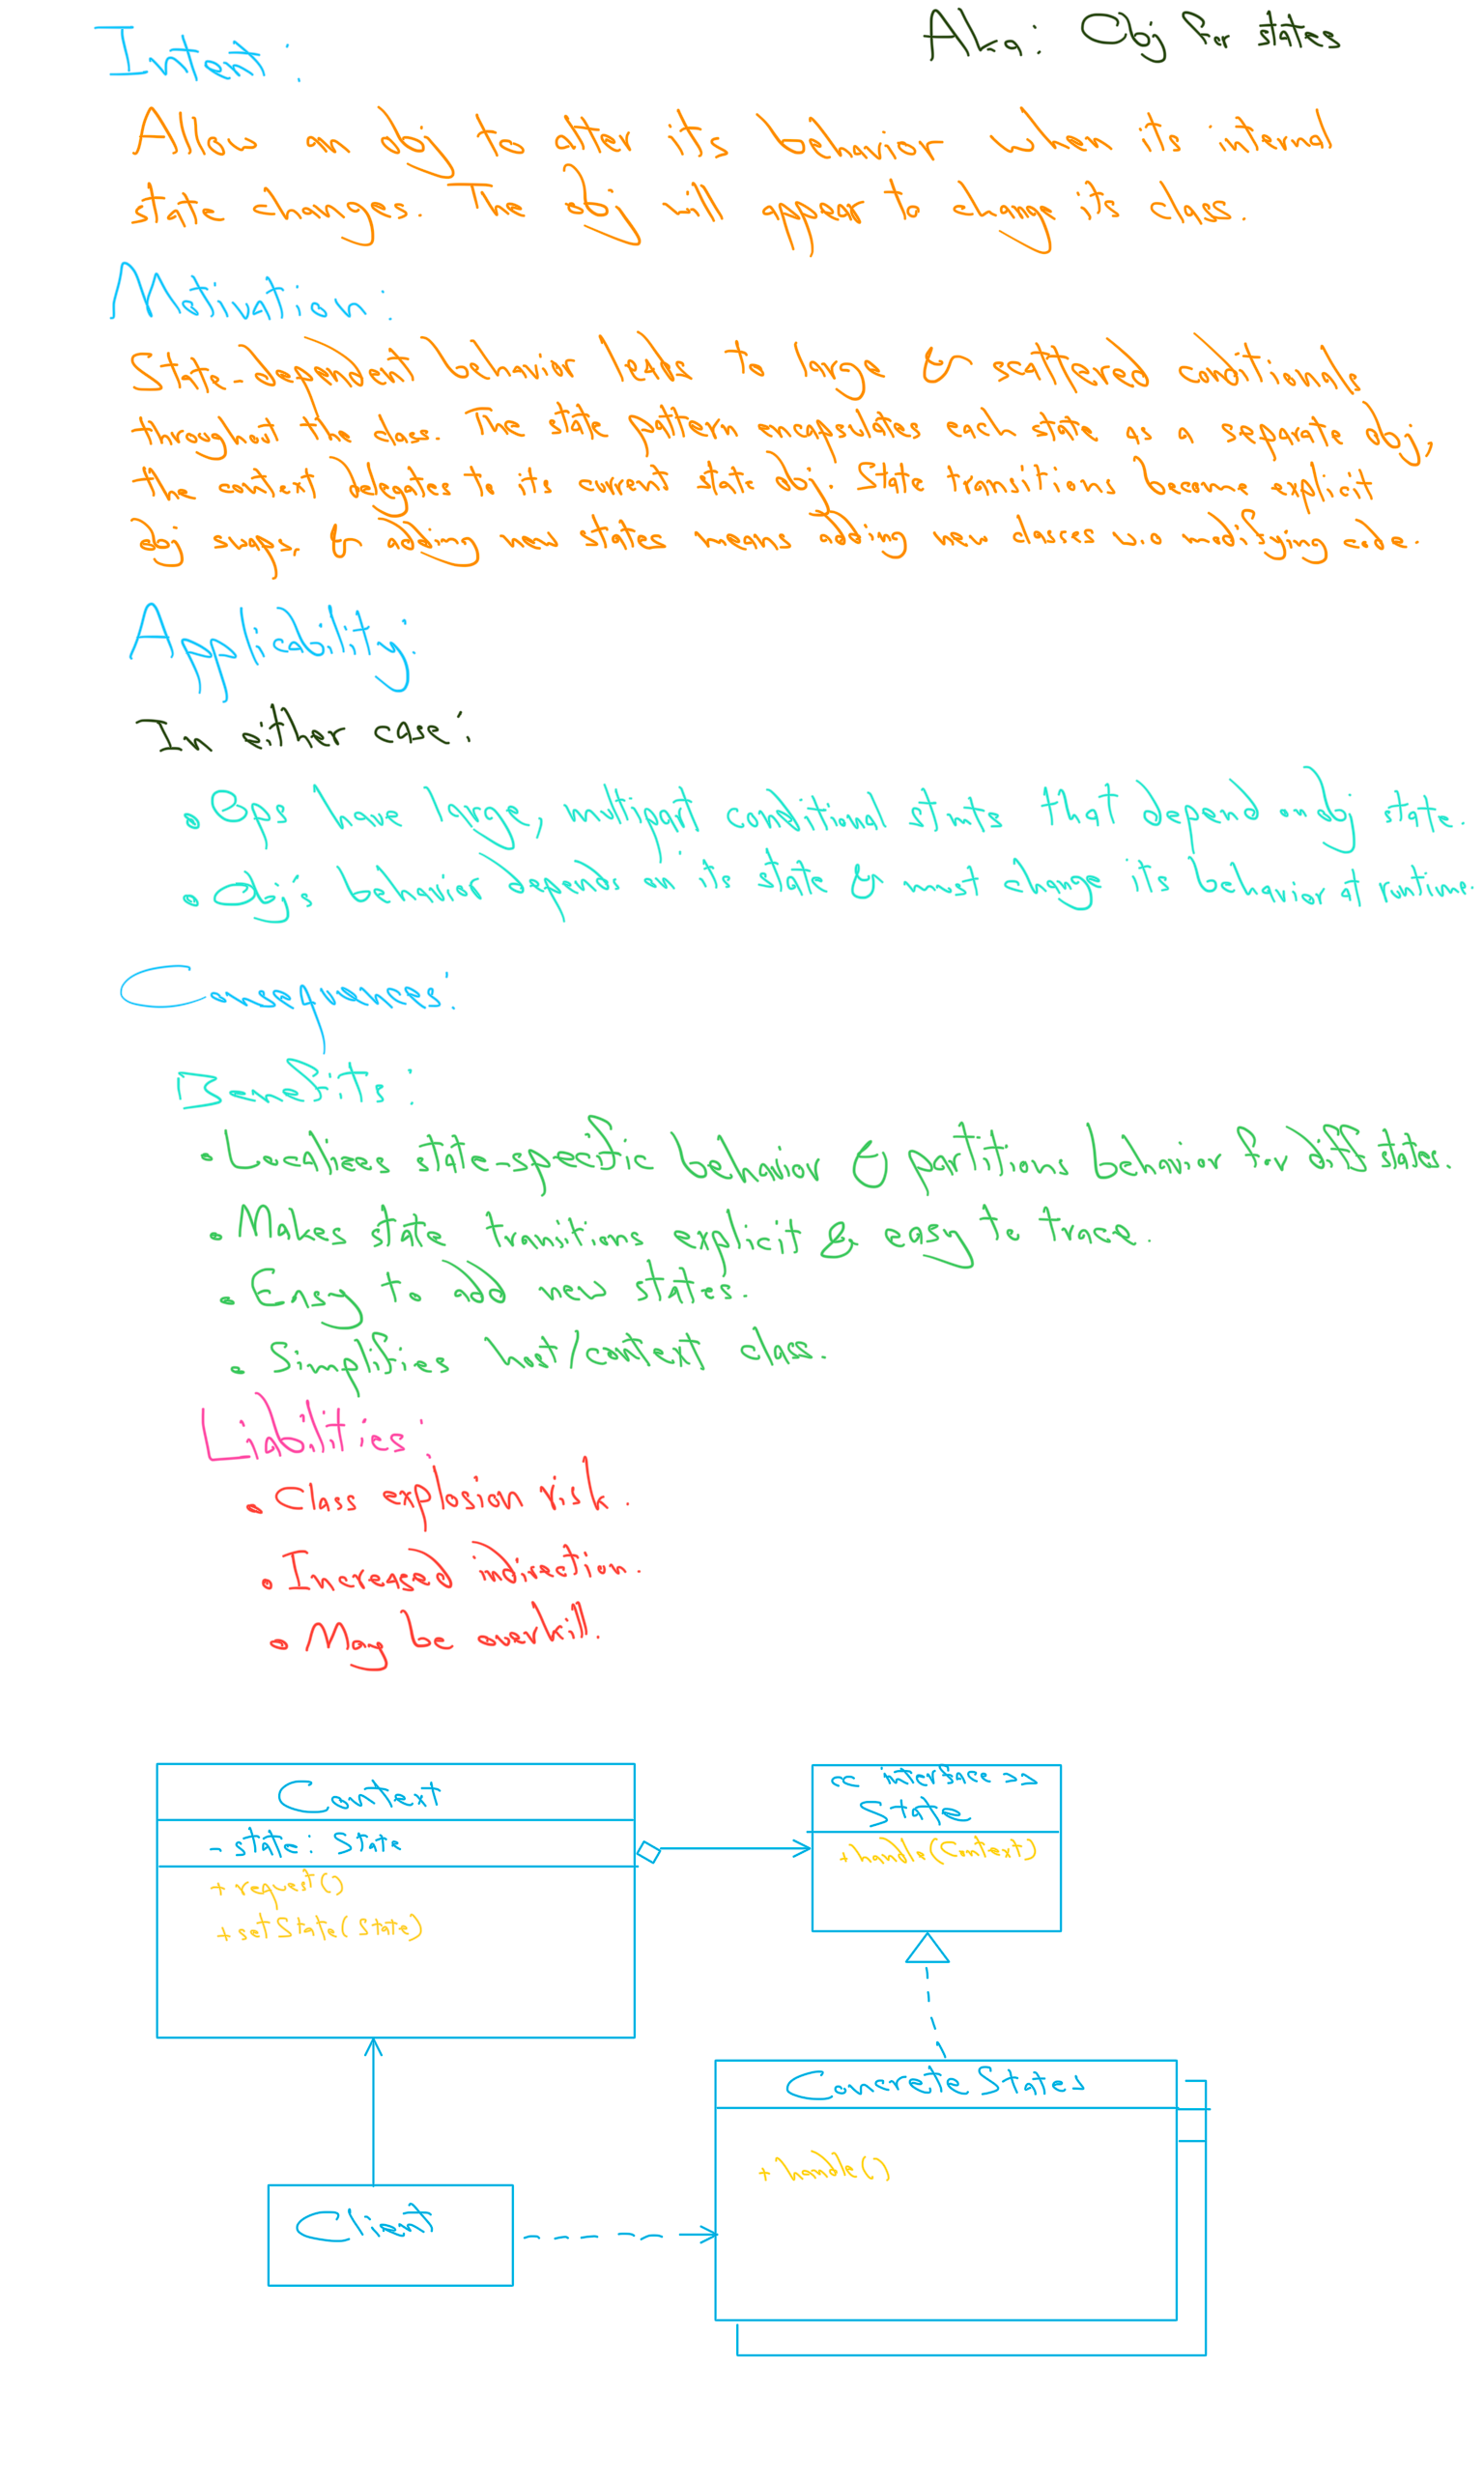 Aka: Obj for states
Intent:
Allow an obj to alter its behavior when its internal
state changes. The obj will appear to change its class.
Motivation:
State-dependent behavior leads to large & scattered conditionals
throughout the class. The state pattern encapsulates each state as a separate obj,
the context delegates to its current state obj. State transitions become explicit
obj swaps, & adding new states means adding new classes w.o modifying code.
Applicability:
In either case:
• Ops have large, multipart conditional stmts that depend on obj state.
• Obj's behavior depends on its state & must change its behavior at runtime.
Consequences:
Benefits:
• Localizes state-specific behavior & partitions behavior for diff states.
• Makes state transitions explicit & easy to trace.
• Easy to add new states.
• Simplifies host/context class.
Liabilities:
• Class explosion risk.
• Increased indirection.
• May be overkill.
Context
- state: State
+ request()
+ setState(State)
<< interface >>
State
+ handle(Context)
Concrete States
+ handle()
Client